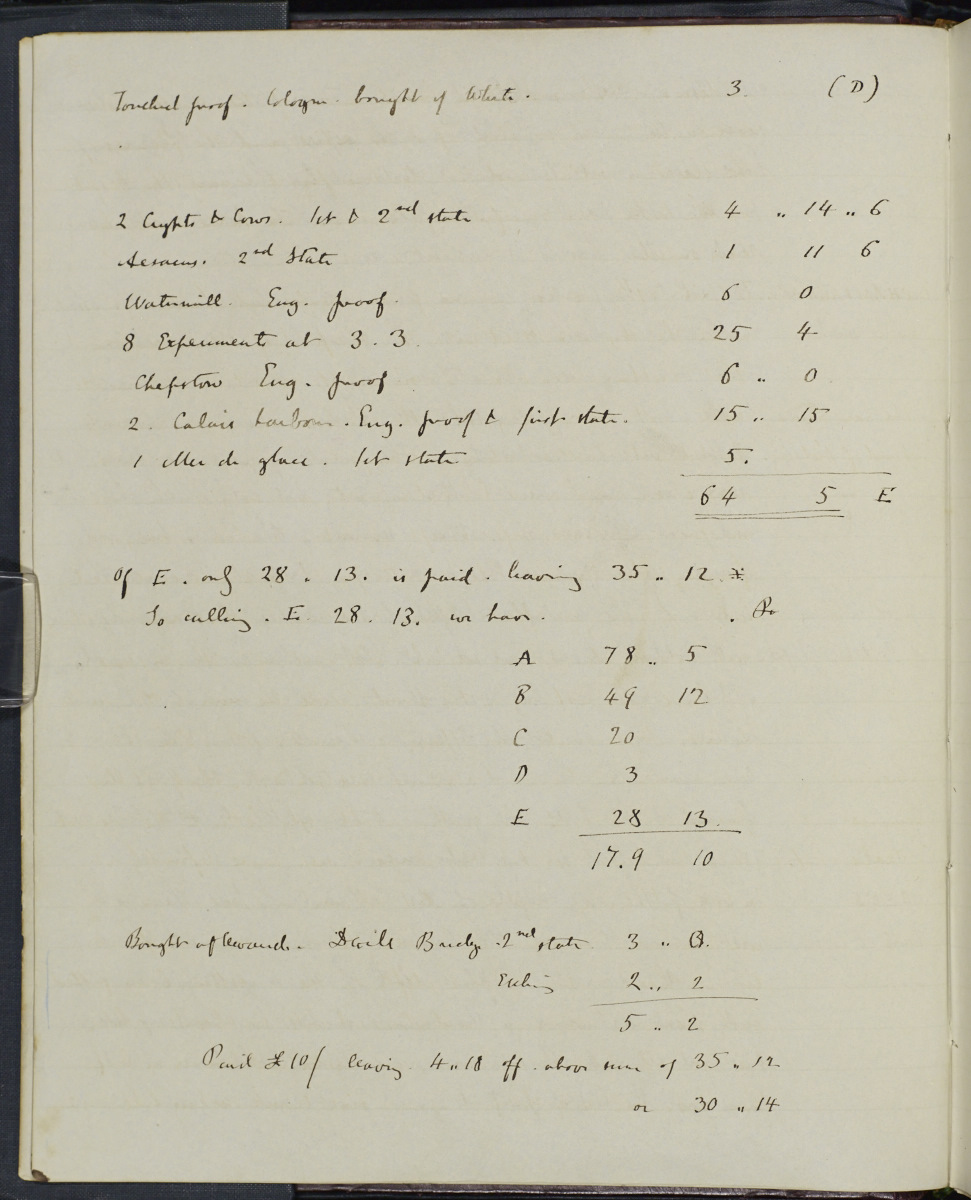 Touched proof. Cologne. bought of White. 3. (D)
2 Crypts & Cows. 1st & 2nd state 4 " 14 " 6
Aesacus. 2nd State 1 11 6
Watermill. Eng. proof. 6 0
8 Experiments at 3. 3. 25 4
Chepstow Eng. proof 6 " 0.
2. Calais harbour. Eng. proof & first state. 15 " 15
1 Mer de glace. 1st state 5.
64 5 E
Of E. only 28 " 13. is paid. leaving 35 " 12.
So calling. E. 28. 13. we have.
A 78 " 5
B 49 12
C 20
D 3
E 28 13.
17.9 10
Bought afterwards. Devils Bridge. 2nd state. 3 " 0.
Etching 2 " 2
5 " 2
Paid £10/ leaving. 4 " 18 off. above sum of 35 " 12
or 30 " 14